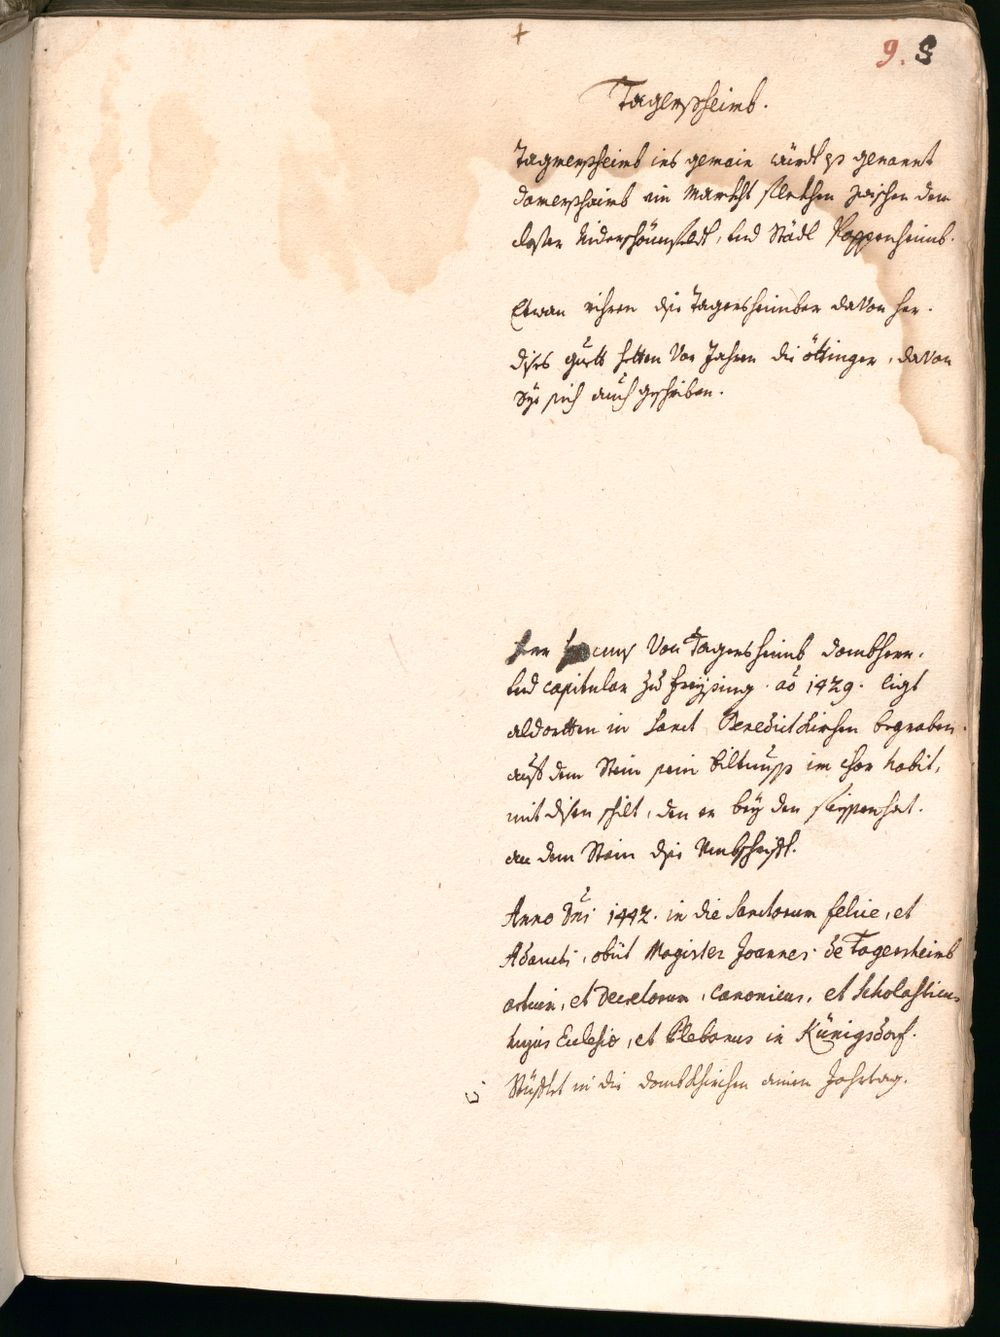 +
9. 8
Tagersheimb.
Tagmersheimb ins gemain würdt es genannt
damershaimb ein Markht flekhen zwischen dem
closter Niderschönefeldt, und Stadt Pappenheimb.
Etwan rihren die Tagersheimber davon her.
dises guett hetten vor Jahren die öttinger, davon
Sye sich auch geschriben.
Herr Hanns von Tagersheimb dombherr.
und capitular zu freysing. aõ 1429. ligt
aldortten in Sanct Benedict kirchen begraben.
auf dem Stein sein biltnuss im chor habit,
mit disen schilt, den er bey den fiessen hat.
an dem Stein die Umbschrifft.
Anno Dñi 1442. in die Sanctorum felice, et
Adaucti, obiit Magister Joannes de Tagersheimb
artium, et Decretorum, Canonicus, et Scholasticus
hujus Eclesiæ, et Plebanus in Künigsdorf.
Stüfftet in die dombkhirchen ainen Jahrtag.